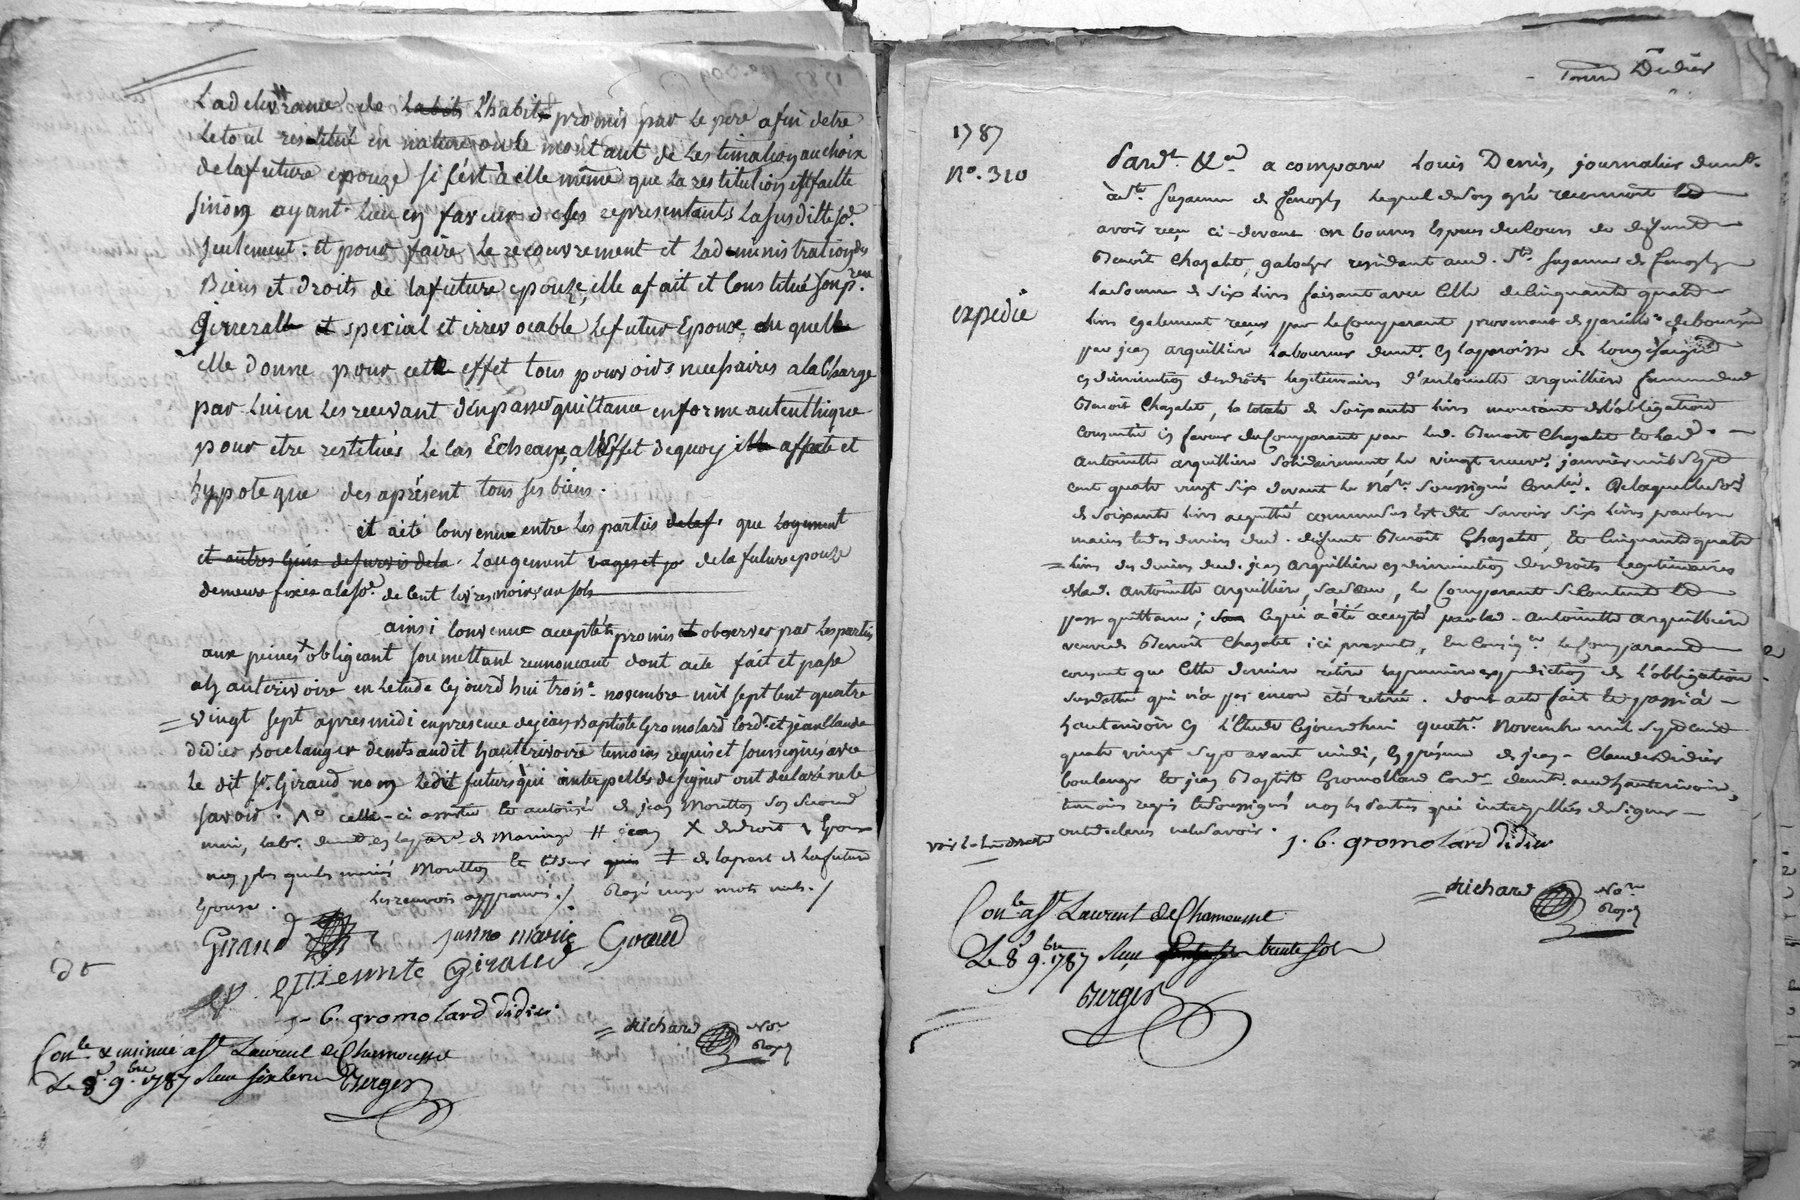 La delivrance de Labit L'habit promis par Le pere afin detre
Le tout restitué en nature ou le montant de Lestimation au choix
de la future epouze si s'est à elle même que La restitution est faitte
sinon ayant lieu en faveur de ses representants La susditte so.
seulement: et pour faire Le recouvrement et Ladministration des
Biens et droits de la future epouze, elle a fait et Constitué son p.reur
generalle et special et irrevocable Le futur Epoux, du quelle
elle donne pour cette effet tous pouvoirs necessaires a la Charge
par Lui en Les recevant d'en passer quittance en forme autenthique
pour etre restitués Le Cas Echeant, a L'Effet de quoy ille affecte et
hypoteque des aprésent tous ses biens.
et a été Convenue entre Les parties de la f. que Logement
et autres Gains de survis de la Laugement bagues et jo de la future epouze
demeure fixée a la so. de Cent Livres moins un sols
ainsi Convenue acceptés promis et observer par Les parties
aux peines obligeant soumettant rennonceant dont acte fait et passé
a hauterivoire en Letude Cejourd'hui trois.e novembre mil sept Cent quatre
vingt sept apres midi en presence de jean Baptiste Gromolard Cord.r et jean Claude
didier Boulanger demts audit hauterivoire temoins requis et soussignés avec
Le dit Sr. Giraud non Ledit futurs qui interpellés de signer ont declaré ne le
savoir. celle-ci assistée et autorisée de jean Moretton son second
mari, lab.r demt. en la par.e de Maringe # jean X de droit & Epoux
non plus que les mariés Moretton et ‡ de la part de la future
Epouse. les renvois approuvés ./. Rayé mots nuls ./
Giraud justine marie Giraud
ettiennte Giraud
dt
J. B. gromolard didier
Richard No.re Royal
Con.lé & insinué a St Laurent de Chamousset
Le 8. 9.bre 1787 Reçu six livres Berger
Didier
1787
N°. 310
Pardt. &ca a comparu Louis Denis, journalier demt.
à Ste. Suzanne de fenoyl lequel de son gré reconnoit
avoir reçu ci-devant en bonnes Especes du Cours de défunt
Benoît Chazalet, galocher residant aud. Ste. Suzanne de fenoyl
La Somme de six livres faisant avec Celle de Cinquante quatre
expedié
livres egalement reçus par le Comparant provenant de pareille deboursée
par jean arquilliere Laboureur demt. en la paroisse de Longessaigne
en diminution des droits legitimaires d'antoinette arquilliere femme dud.
Benoît Chazalet, la totale de soixante livres montant de l'obligation
Consentie en faveur du Comparant par led. Benoît Chazalet et lad.
antoinette arquilliere solidairement le vingt neuv. janvier mil sept
cent quatre vingt six devant le No.re soussigné Conlé. De laquelle so.
de soixante livres acquitté comme dit Est dit savoir six livres par les
mains des deniers dud. défunt Benoît Chazalet, et Cinquante quatre
livres des deniers dud. jean arquilliere en diminution des droits legitimaires
de lad. antoinette arquilliere, sa soeur, le Comparant se Contente et
passe quittance; ce qui a été accepté par lad. antoinette arquilliere
veuve de Benoît Chazalet ici presente, En Conséq.ce le Comparant
consent que Cette derniere retire la premiere expedition de L'obligation
susdatée qui n'a pas encore été retirée. dont acte fait et passé à
hauterivoire en L'Etude Cejourdhui quatr. Novembre mil sept cent
quatre vingt sept avant midi, En présence de jean-Claude didier
boulanger et jean Baptiste Gromollard Cord.r demts. aud hauterivoire,
temoins requis et soussignés non les parties qui interpellés de signer
ont declarés ne le savoir.
J. B. gromolard didier
Richard No.re Royal
Con.lé a St Laurent de Chamousset
Le 8 9.bre 1787 Reçu trente sols
Berger